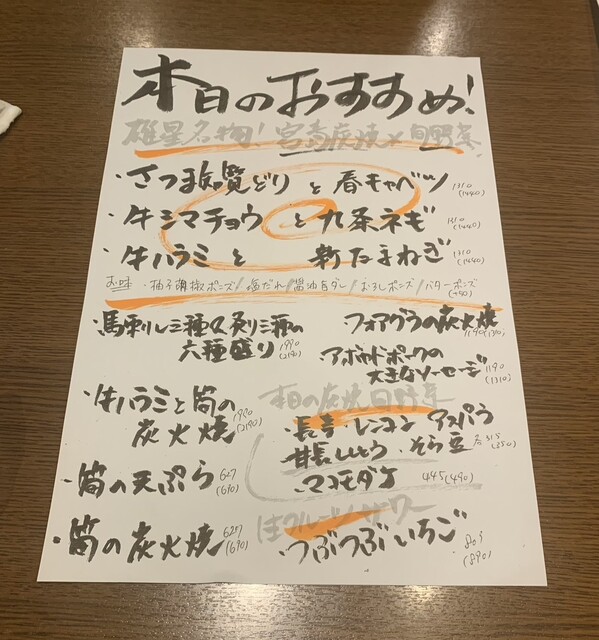 本日のおすすめ!
雄星名物!宮崎炭焼×旬野菜
・さつま知覧どり と 春キャベツ 1310(1440)
・牛シマチョウ と 九条ネギ 1310(1440)
・牛ハラミ と 新たまねぎ 1310(1440)
お味・柚子胡椒ポンズ/塩だれ/醤油白ダレ/おろしポンズ/バターポンズ
・馬刺し三種&炙り三種の
六種盛り 1990(2190)
フォアグラの炭火焼 1190(1310)
アボカドポークの
大きなソーセージ 1190(1310)
・牛ハラミと筍の
炭火焼 1990(2190)
・筍の天ぷら 627(690)
・筍の炭火焼 627(690)
本日の炭焼旬野菜
・長芋・レンコン アスパラ
・甘長とうとう・そら豆 各315(350)
・マコモダケ 445(490)
生フルーツサワー
・つぶつぶいちご 809(890)